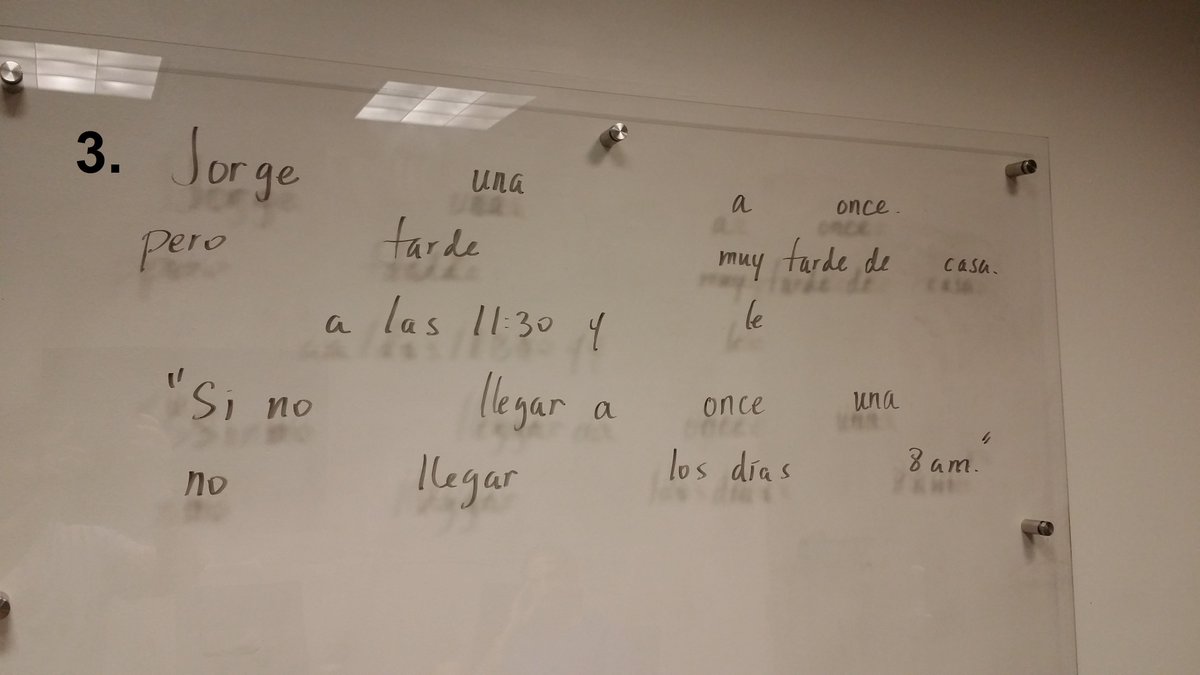 3. Jorge una a once.
pero tarde muy tarde de casa.
a las 11:30 y le
"Si no llegar a once una
no llegar los días 8 am."